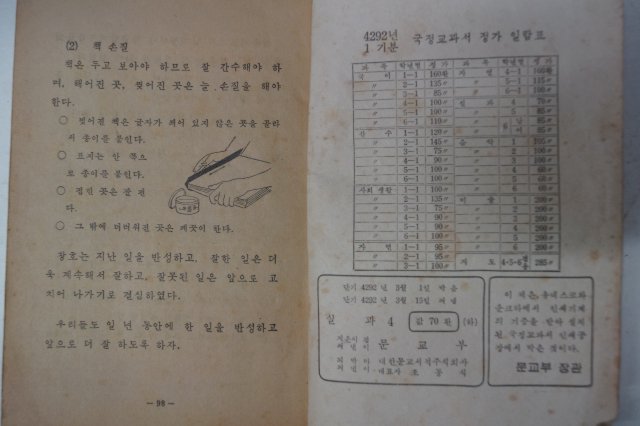 (2) 책 손질
책은 두고 보아야 하므로 잘 간수해야 하
며, 해어진 곳, 찢어진 곳은 늘 손질을 해야
한다.
○ 찢어진 책은 글자가 씌어 있지 않은 곳을 골라
서 종이를 붙인다.
○ 표지는 안 쪽으
로 종이를 붙인다.
○ 접힌 곳은 잘 편
다.
○ 그 밖에 더러워진 곳은 깨끗이 한다.
창호는 지난 일을 반성하고, 잘한 일은 더
욱 계속해서 잘하고, 잘못된 일은 앞으로 고
치어 나가기로 결심하였다.
우리들도 일 년 동안에 한 일을 반성하고
앞으로 더 잘 하도록 하자.
— 98 —
4292년
1 기분
국정교과서 정가 일람표
과 목 학년별 정 가 과 목 학년별 정 가
국 어 1-1 160환 자 연 4-1 105환
〃 1-1 100〃 〃 5-1 115〃
〃 2-1 135〃 〃 6-1 100〃
〃 3-1 85〃
〃 4-1 100〃 실 과 4 70〃
〃 5-1 100〃 〃 5 85〃
〃 6-1 110〃
산 수 1-1 120〃
〃 2-1 145〃 음 악 1
〃 3-1 75〃 〃 2 100〃
〃 4-1 90〃 〃 3 100〃
〃 5-1 100〃 〃 4
〃 6-1 100〃 〃 5
사회 생활 1-1 100〃 〃 6
〃 2-1 135〃 미 술 1 200〃
〃 3-1 75〃 〃 2 200〃
〃 4-1 90〃 〃 3 200〃
〃 5-1 90〃 〃 4 200〃
〃 6-1 100〃 〃 5 200〃
자 연 1-1 95〃 〃 6 200〃
〃 2-1 95〃
〃 3-1 100〃 지 도 4·5·6 285〃
단기 4292년 3월 1일 박음
단기 4292년 3월 15일 펴냄
실 과 4 값 70환 (하)
지은이 겸
펴낸이 문 교 부
대한문교서적주식회사
대표자 조 동 식
이 책은 유네스코와
운크라에서 인쇄기계
의 기증을 받아 설치
된 국정교과서 인쇄공
장에서 박은 것이다.
문교부 장관